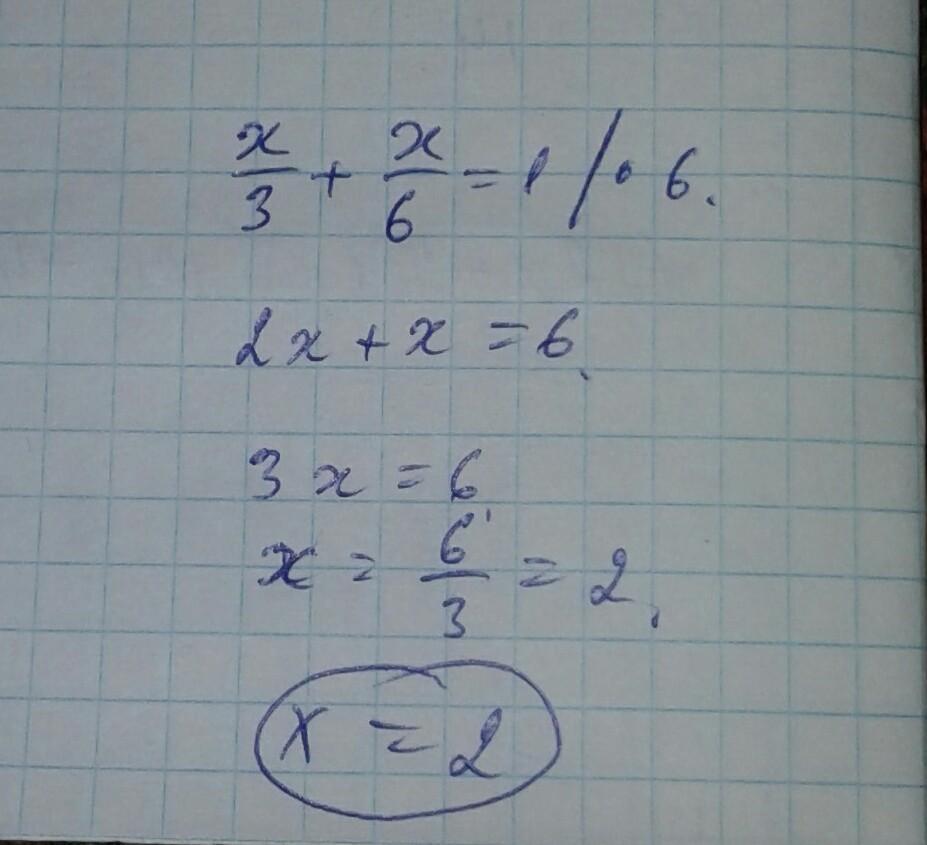 x/3 + x/6 = 1 / • 6.
2x + x = 6.
3x = 6
x = 6/3 = 2.
x = 2